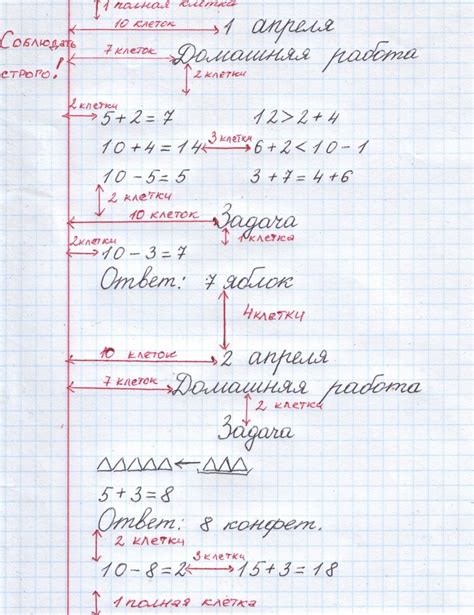 1 полная клетка
10 клеток 1 апреля
Соблюдать строго!
7 клеток Домашняя работа
2 клетки
2 клетки 5+2=7 12>2+4
10+4=14 3 клетки 6+2<10-1
10-5=5 3+7=4+6
2 клетки
10 клеток Задача
2 клетки 1 клетка
10-3=7
Ответ: 7 яблок
4 клетки
10 клеток 2 апреля
7 клеток Домашняя работа
2 клетки
Задача
5+3=8
Ответ: 8 конфет.
2 клетки
10-8=2 3 клетки 15+3=18
1 полная клетка